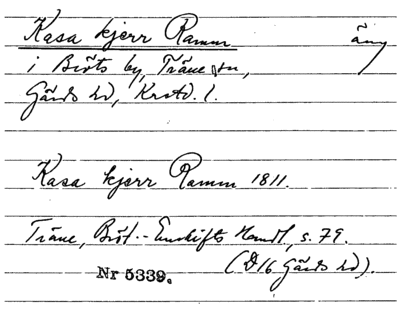 Kasa kjerr Ramm äng
i Bröts by, Träne sn,
Gärds hd, Krstd. l.
Kasa kjerr Ramm 1811.
Träne, Bröt. - Enskifts Handl, s. 79.
(D16 Gärds hd).
Nr 5339.